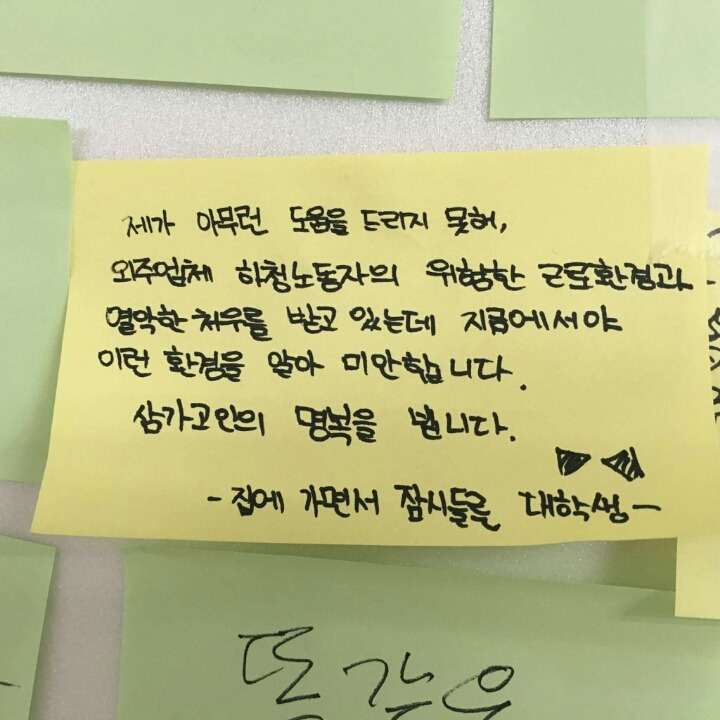 제가 아무런 도움을 드리지 못해,
외주업체 하청노동자의 위험한 근로환경과
열악한 처우를 받고 있는데 지금에서야
이런 환경을 알아 미안합니다.
삼가고인의 명복을 빕니다.
-집에 가면서 잠시들를 대학생-
똑같은